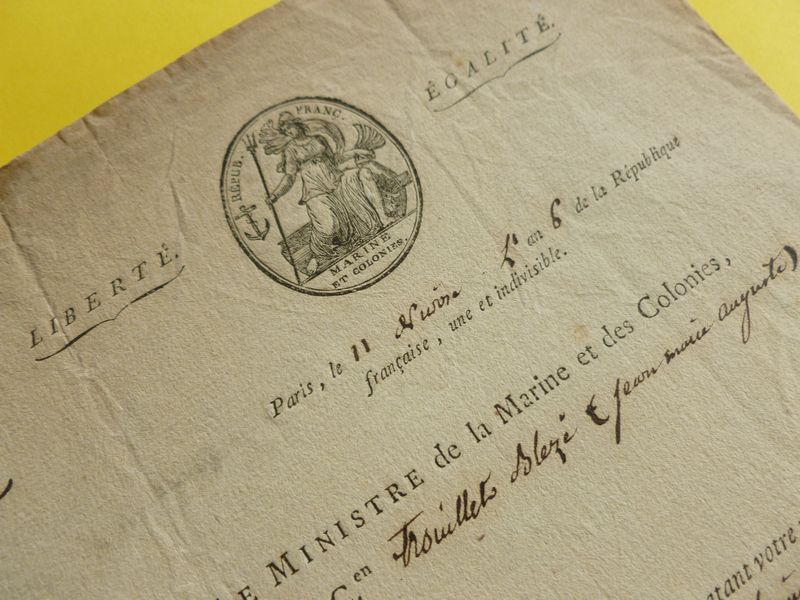 LIBERTÉ.
ÉGALITÉ.
RÉPUB. FRANC.
MARINE
ET COLONIES.
Paris, le 11 Nivôse L'an 6 de la République
française, une et indivisible.
LE MINISTRE de la Marine et des Colonies,
C.en Trouillet Blezé (Jean marie auguste)
tant votre